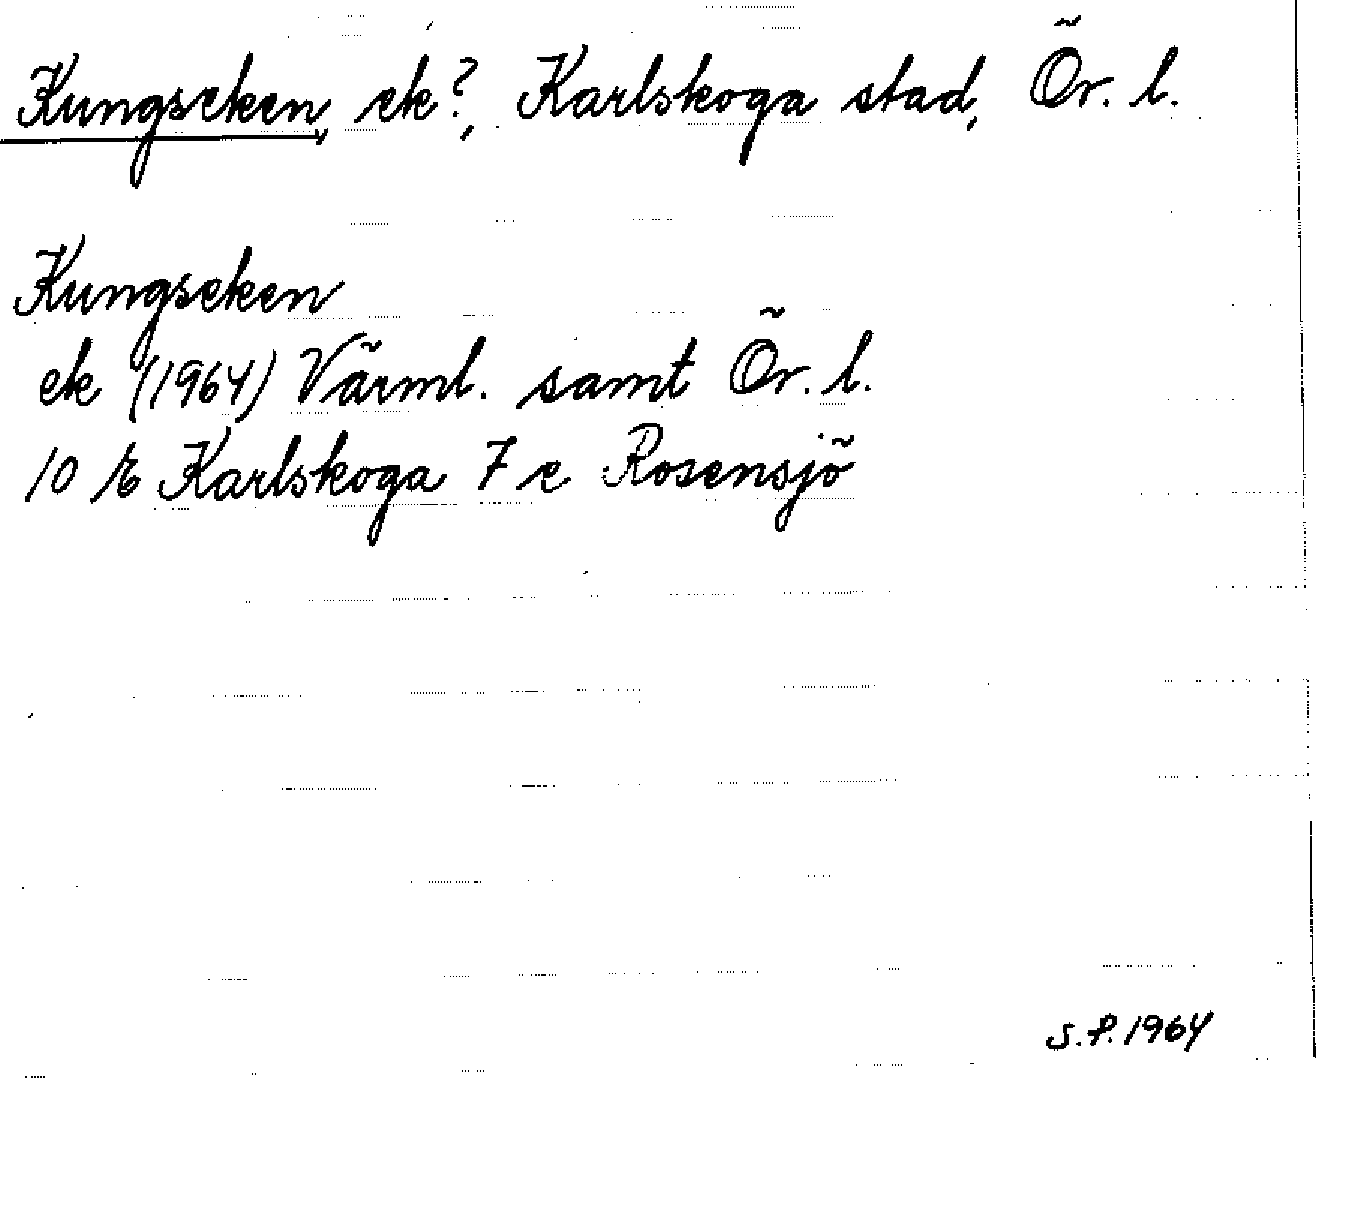 Kungseken, ek?, Karlskoga stad, Ör. l.
Kungseken
ek (1964) Värml. samt Ör. l.
10 E Karlskoga 7 e Rosensjö
S.P. 1964